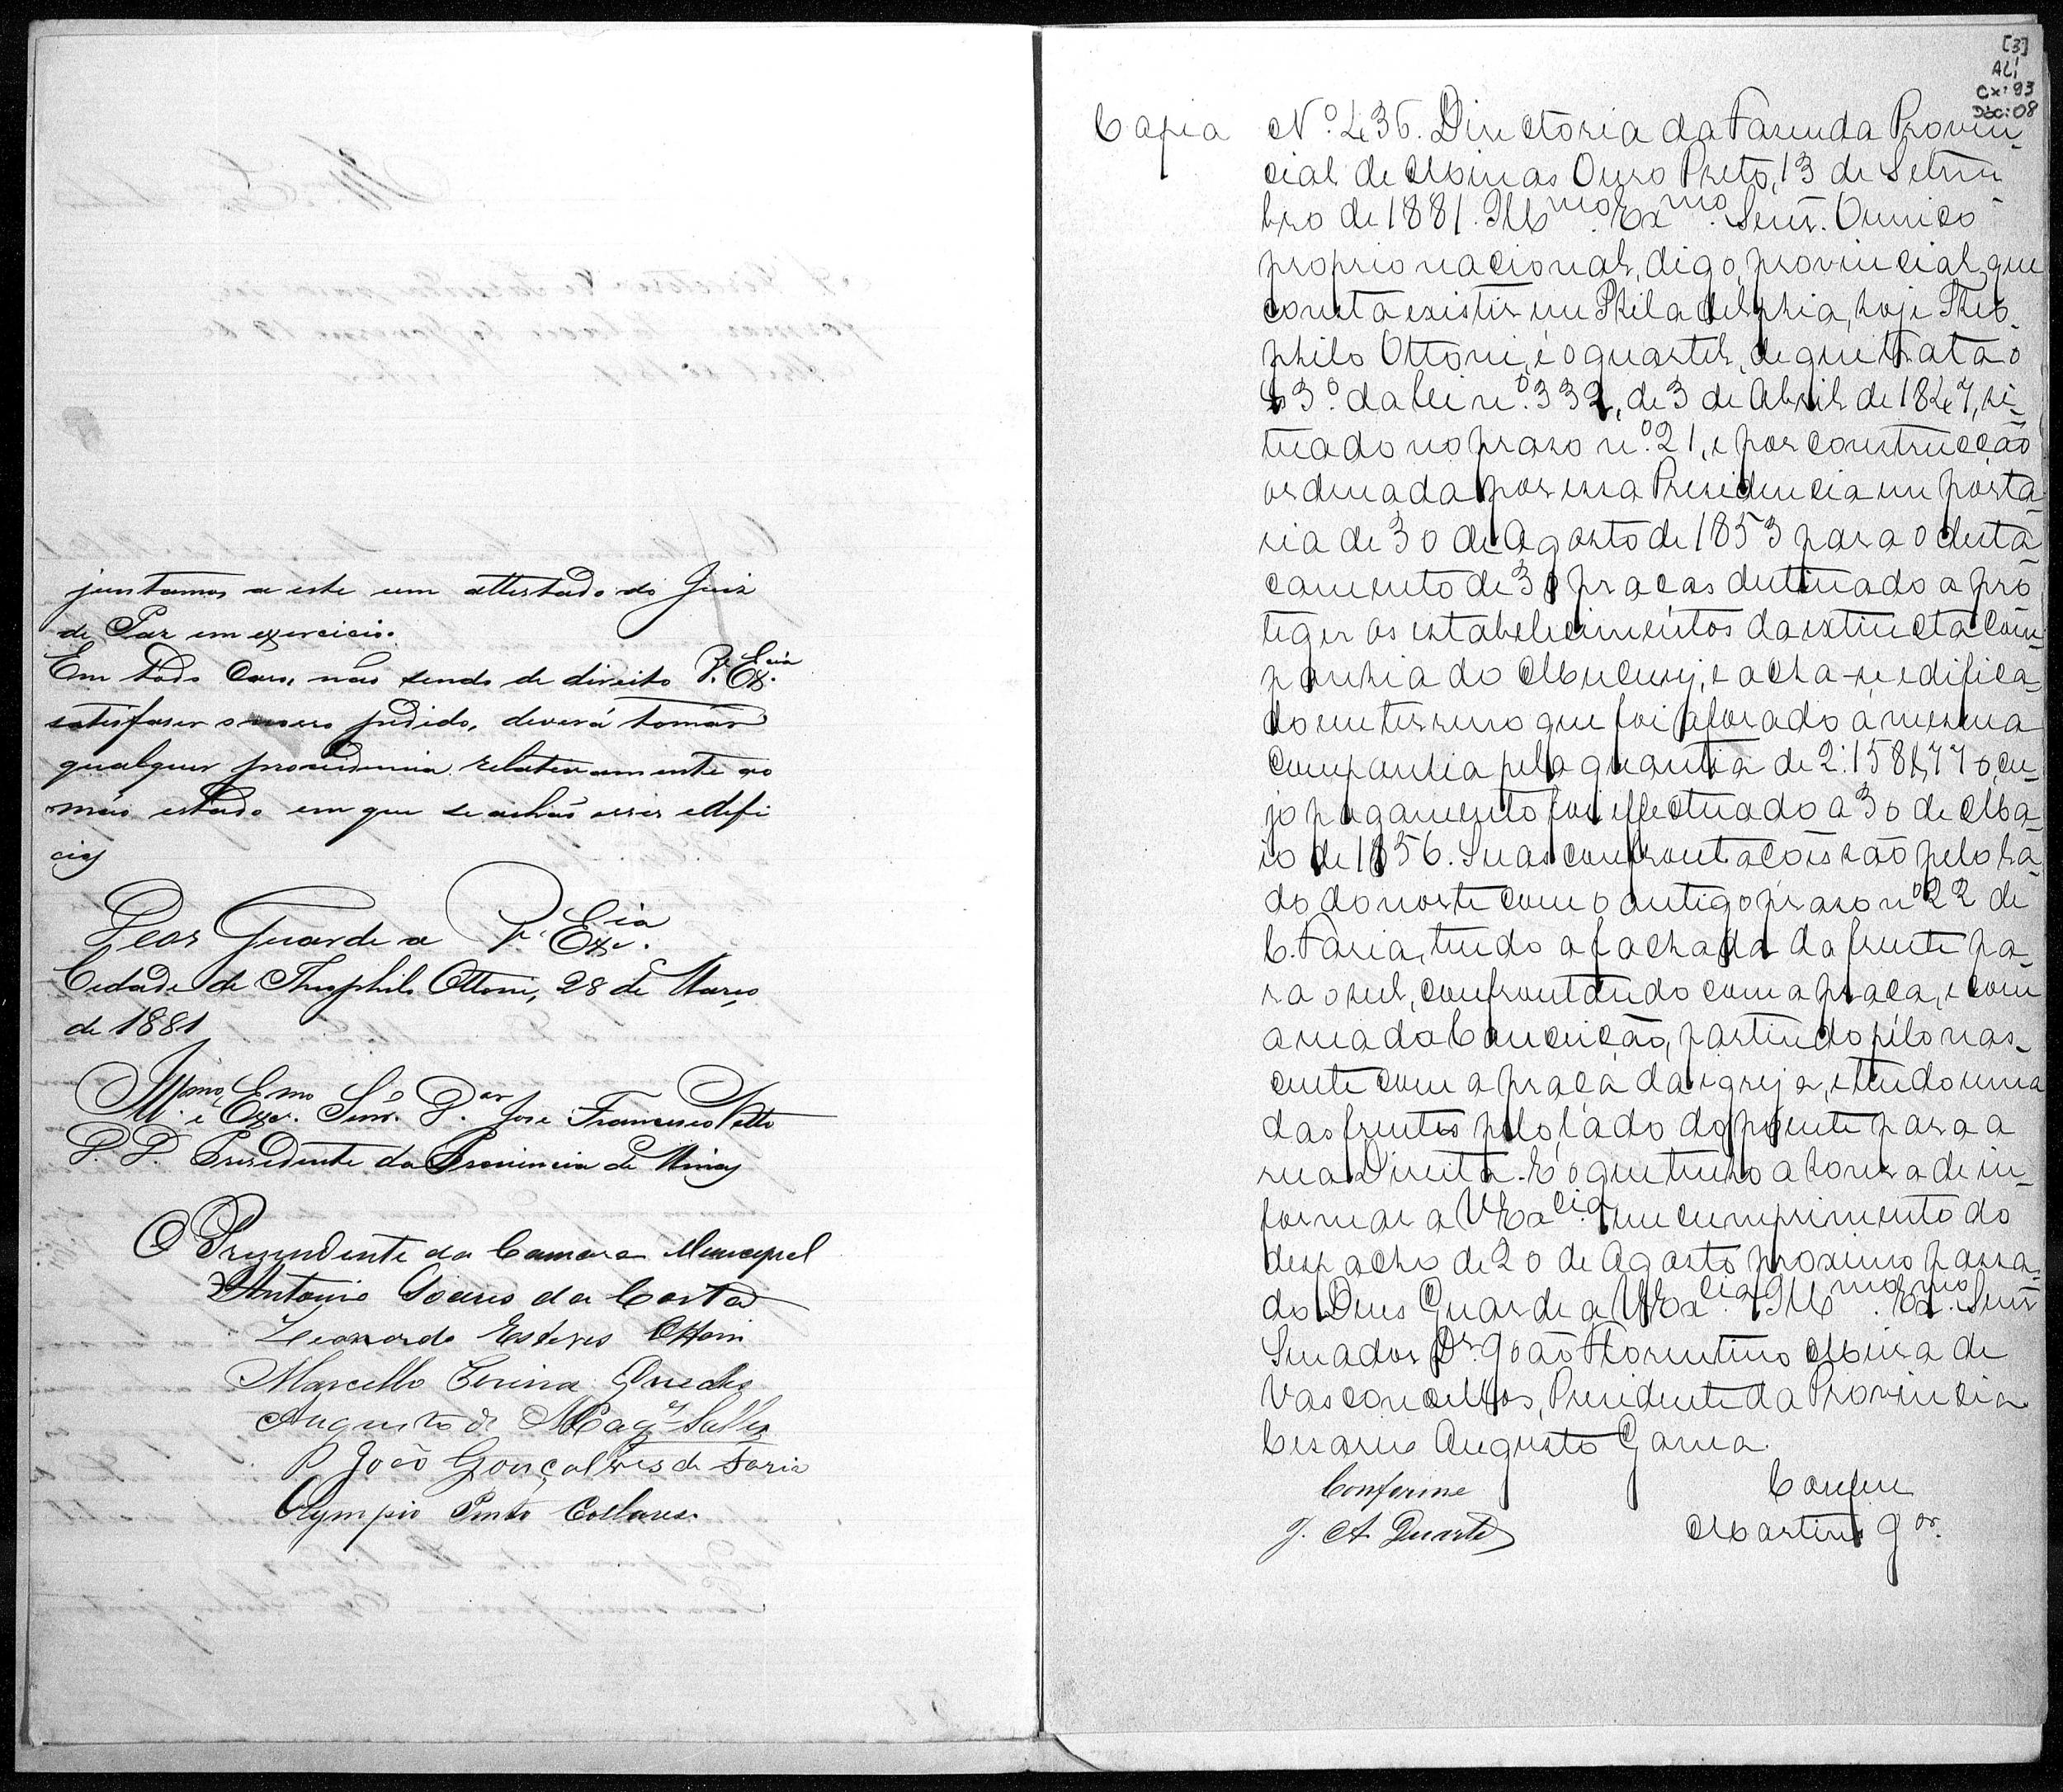 juntamos a este um attestado do Juiz
de Paz em exercicio.
Em todo caso, não sendo de direito V. Ex.cia
satisfaser o nosso pedido, deverá tomar
qualquer providencia relativamente ao
máo estado em que se achão esses edifi
cios
Deos Guarde a V. Exc.cia
Cidade de Theophilo Ottoni, 28 de Março
de 1881
Ill.mo e Exc.mo Senr. D.or José Francisco Netto
P. P. Presidente da Provincia de Minas
O Prezendente da Camara Muncepel
Antonio Soares da Costa
Leonardo Esteves Ottoni
Marcello Guedes
Augusto de Mag.es Salles
P João Gonçalves de Faria
Olympio Pinto Collares.
[3]
ALI
Cx: 93
Doc: 08
Copia
Nº 436. Directoria da Fazenda Provin-
cial de Minas Ouro Preto, 13 de Setem
bro de 1881. Ill.mo Ex.mo Senr. O unico
proprio nacional, digo, provincial que
consta existir em Philadelphia, hoje Theo-
philo Ottoni, é o quartel, de que trata o
§ 3º da lei nº 332, de 3 de Abril de 1847, si-
tuado no praso nº 21, e por construcção
ordenada por essa Presidencia em porta-
ria de 30 de Agosto de 1853 para o desta
camento de 30 praças destinado a pro
teger os estabelecimentos da extincta Com-
panhia do Mucury, e acha-se edifica-
do em terreno que foi aforado á mesma
companhia pela quantia de 2:158$770, cu-
jo pagamento foi effectuado a 30 de Ma-
io de 1856. Suas confrontações são pelo la-
do do norte com o antigo praso nº 22 de
C. Faria, tendo a fachada da frente pa-
ra o sul, confrontando com a praça, e com
a rua da Conceição, partindo pelo nas-
cente com a praça da igreja, e tendo uma
das frentes pelo lado do poente para a
rua Direita. E o que tenho a honra de in-
formar a V Ex.cia em cumprimento do
despacho de 20 de Agosto proximo passa-
do Deus Guarde a V Ex.cia Ill.mo Ex.mo Senr
Senador Dr. João Florentino Meira de
Vasconcellos, Presidente da Provincia
Cesario Augusto Gama.
Conforme
J. A. Duarte
Confere
Martins J.or